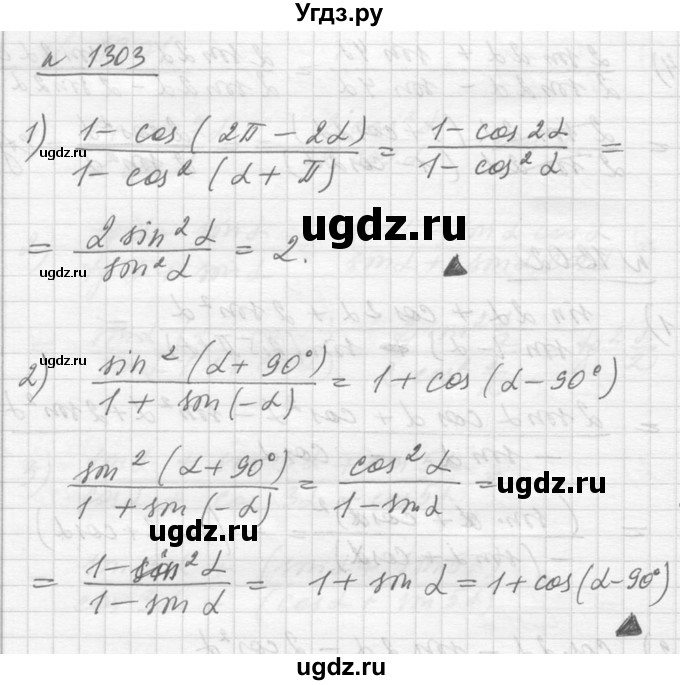 Угдз.ру
n 1303
1) (1 - cos(2π - 2α)) / (1 - cos² (α + π)) = (1 - cos 2α) / (1 - cos² α) =
gdz.ru
ugdz.ru
= (2 sin² α) / (sin² α) = 2.
gdz.ru
ugdz.ru
2) (sin² (α + 90°)) / (1 + sin(-α)) = 1 + cos(α - 90°)
gdz.ru
ugdz.ru
(sin² (α + 90°)) / (1 + sin(-α)) = (cos² α) / (1 - sin α) =
ugdz.ru
ugdz.ru
= (1 - sin² α) / (1 - sin α) = 1 + sin α = 1 + cos(α - 90°)
ugdz.ru
ugdz.ru